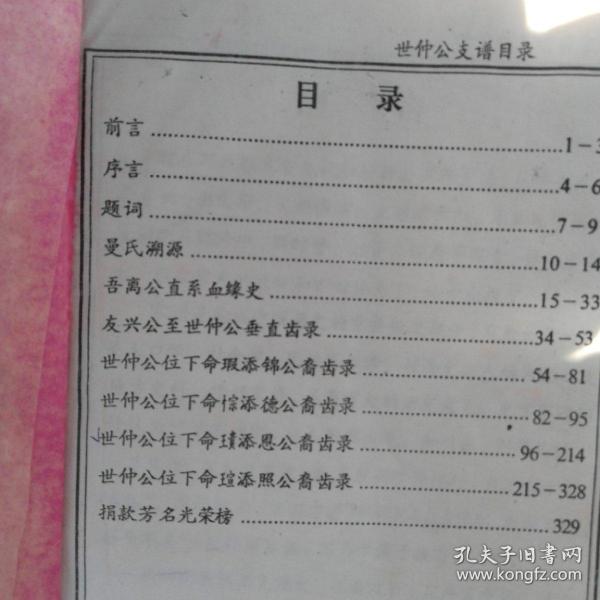 世仲公支谱目录
目 录
前言 1-3
序言 4-6
题词 7-9
曼氏溯源 10-14
吾离公直系血缘史 15-33
友兴公至世仲公垂直齿录 34-53
世仲公位下命瑕添锦公裔齿录 54-81
世仲公位下命悰添德公裔齿录 82-95
世仲公位下命璝添恩公裔齿录 96-214
世仲公位下命瑄添照公裔齿录 215-328
捐款芳名光荣榜 329
孔夫子旧书网
www.kongfz.com